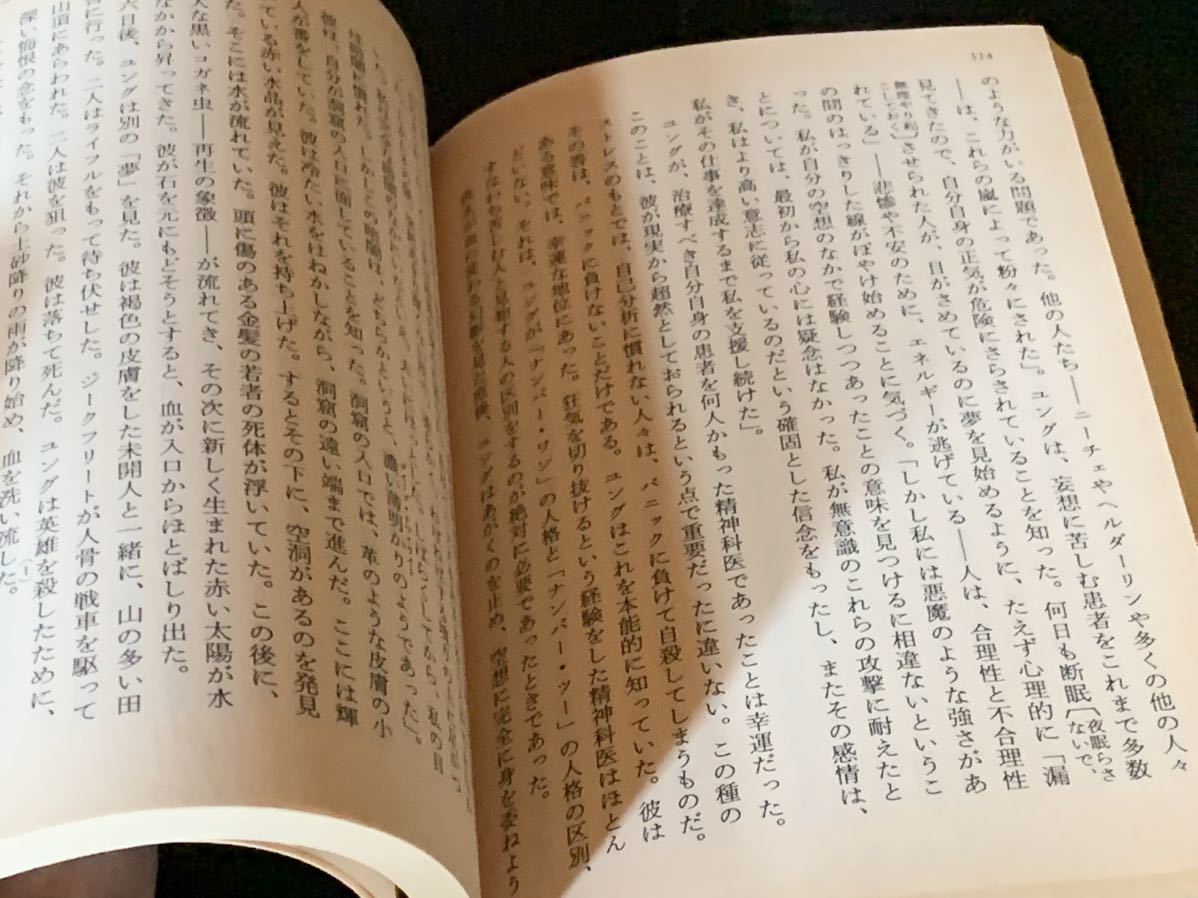 124
のような力がいる問題であった。他の人たち――ニーチェやヘルダーリンや多くの他の人々
――は、これらの嵐によって粉々にされた」。ユングは、妄想に苦しむ患者をこれまで多数
見てきたので、自分自身の正気が危険にさらされていることを知った。何日も断眠〔夜眠らさないで、
無理やり起こしておく〕させられた人が、目がさめているのに夢を見始めるように、たえず心理的に「漏
れている」――悲惨や不安のために、エネルギーが逃げている――人は、合理性と不合理性
の間のはっきりした線がぼやけ始めることに気づく。「しかし私には悪魔のような強さがあ
った。私が自分の空想のなかで経験しつつあったことの意味を見つけるに相違ないというこ
とについては、最初から私の心には疑念はなかった。私が無意識のこれらの攻撃に耐えたと
き、私はより高い意志に従っているのだという確固とした信念をもったし、またその感情は、
私がその仕事を達成するまで私を支援し続けた」。
ユングが、治療すべき自分自身の患者を何人かもった精神科医であったことは幸運だった。
このことは、彼が現実から超然としておられるという点で重要だったに違いない。この種の
ストレスのもとでは、自己分析に慣れない人々は、パニックに負けて自殺してしまうものだ。
その答は、パニックに負けないことだけである。ユングはこれを本能的に知っていた。彼は
ある意味では、幸運な地位にあった。狂気を切り抜けるという経験をした精神科医はほとん
どいない。それは、ユングが「ナンバー・ワン」の人格と「ナンバー・ツー」の人格の区別、
を見た直後、ユングはあがくのを止め、空想に完全に身を委ねよう
は暗闇に慣れた。しかしこの暗闇は、どちらかというと、濃い薄明かりのようであった」。
彼は、自分が洞窟の入口に面していることを知った。洞窟の入口では、革のような皮膚の小
人が番をしていた。彼は冷たい水をはねかしながら、洞窟の遠い端まで進んだ。ここには輝
いている赤い水晶が見えた。彼はそれを持ち上げた。するとその下に、空洞があるのを発見
した。そこには水が流れていた。頭に傷のある金髪の若者の死体が浮いていた。この後に、
人な黒いコガネ虫――再生の象徴――が流れてき、その次に新しく生まれた赤い太陽が水
なかから昇ってきた。彼が石を元にもどそうとすると、血が入口からほとばしり出た。
六日後、ユングは別の「夢」を見た。彼は褐色の皮膚をした未開人と一緒に、山の多い田
に行った。二人はライフルをもって待ち伏せした。ジークフリートが人骨の戦車を駆って
山頂にあらわれた。二人は彼を狙った。彼は落ちて死んだ。ユングは英雄を殺したために、
深い悔恨の念をもった。それから土砂降りの雨が降り始め、血を洗い流した。(1)